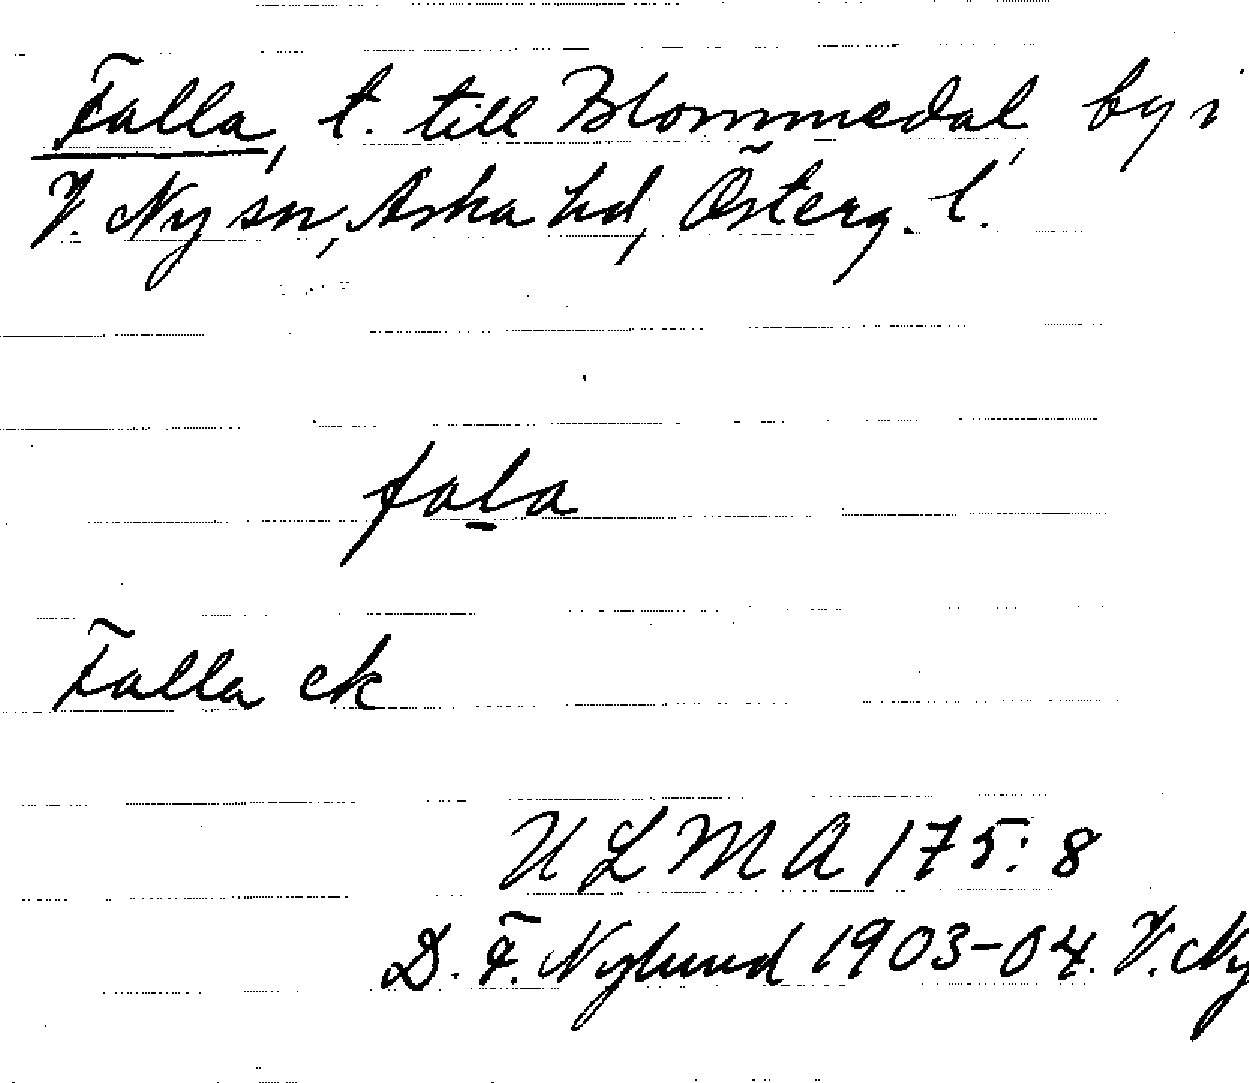 Falla, t. till Blommedal, by i
V. Ny sn, Aska hd, Österg. l.
fala
Falla ek
U L M A 175:8
D. F. Nylund 1903-04. V. Ny